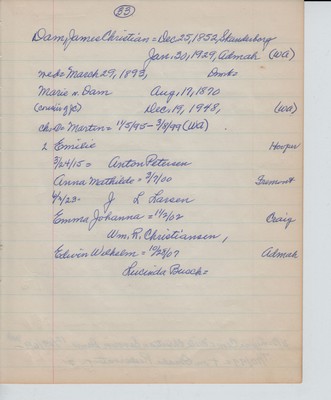 53
Dam, James Christian = Dec. 25, 1852, Skanderborg
Jan. 30, 1929, Admah (WA)
wed = March 29, 1893, Omaha
Marie n. Dam Aug. 17, 1870
(cousin of JC) Dec. 19, 1948, (WA)
chil = Martin = 1/5/95 - 3/8/99 (WA)
2 Emilie Harper
3/24/15 = Anton Petersen
Anna Mathilde = 3/7/00 Fremont
4/4/23 - J L Larsen
Emma Johanna = 1/2/02 Craig
Wm. R. Christiansen,
Edwin Wilhelm = 10/28/07 Admah
Lucinda Busch =